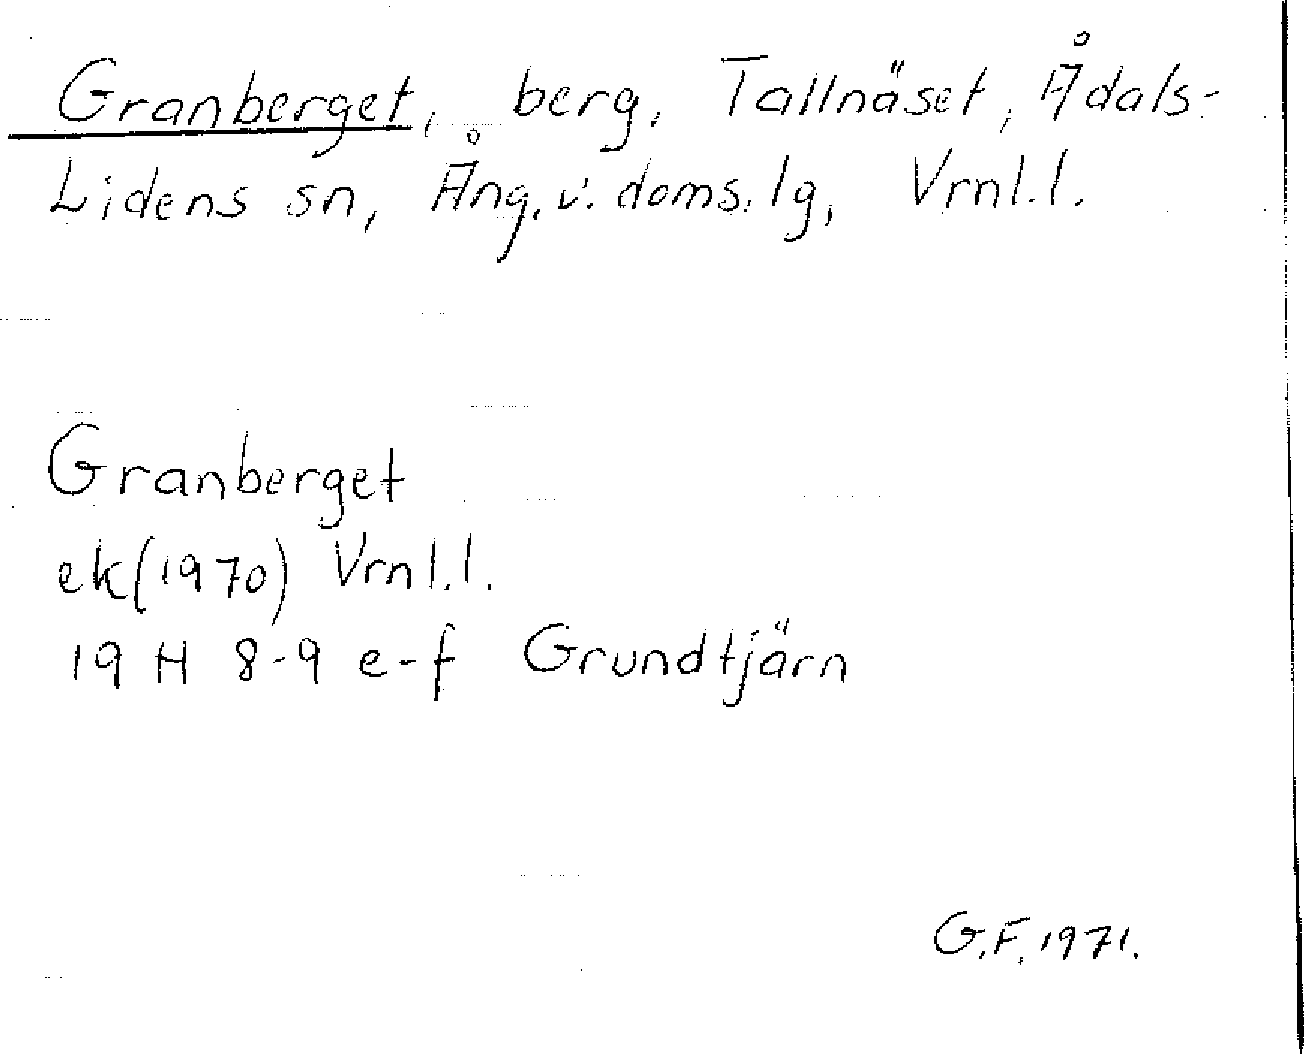 Granberget, berg, Tallnäset, Ådals-
Lidens sn, Ång. v. doms. lg, Vrnl. l.
Granberget
ek (1970) Vrnl. l.
19 H 8-9 e-f Grundtjärn
G.F. 1971.